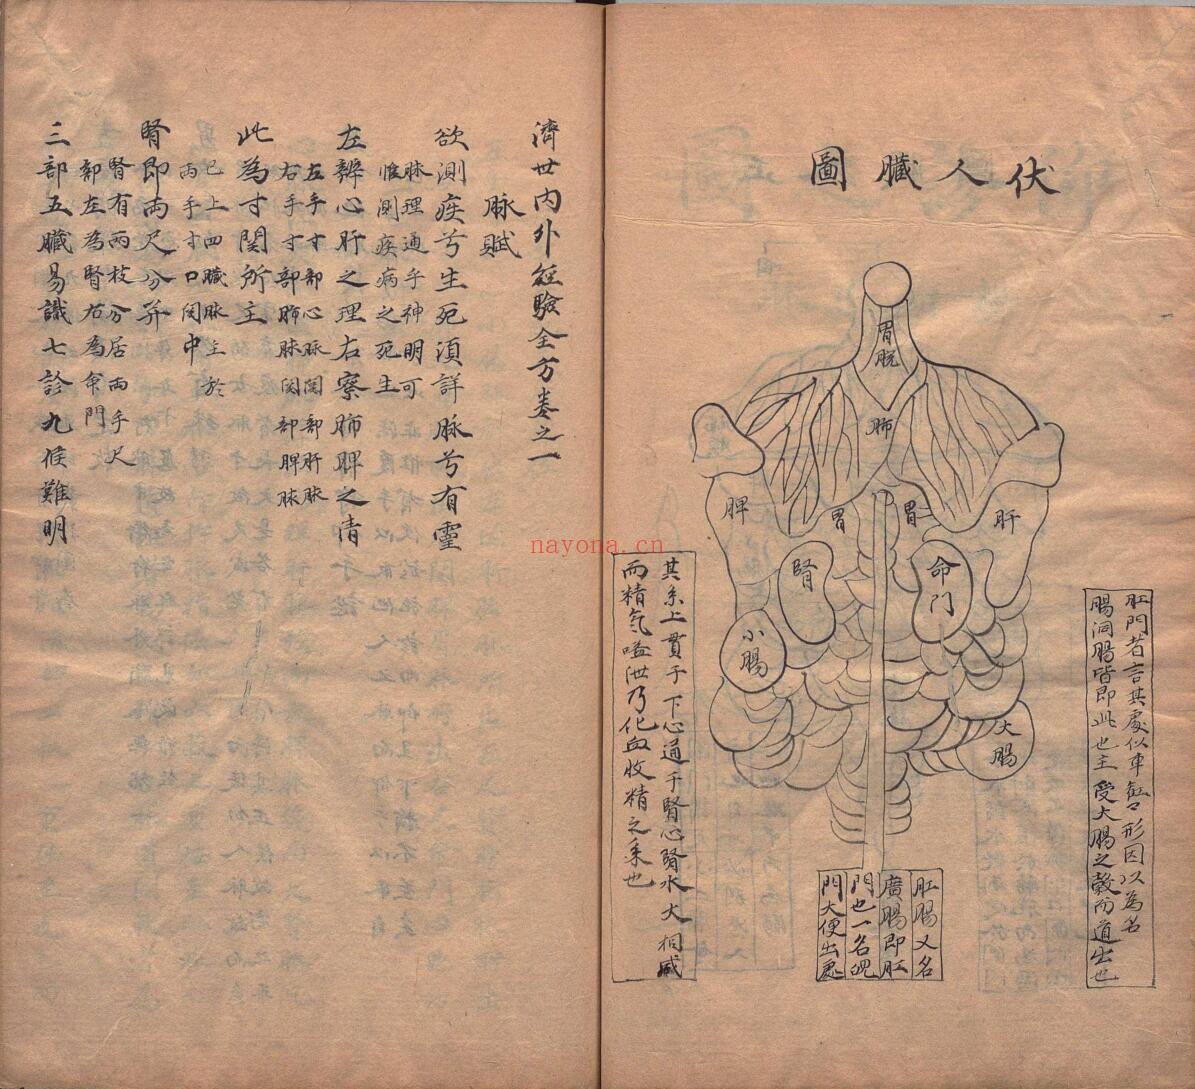 伏人臟圖
肛門者言其處似車缸形因以為名
腸洞腸皆即此也主受大腸之穀而道出也
胃脘
肺
脾
胃
胃
肝
腎
命門
小腸
大腸
肛腸又名
廣腸即肛
門也一名魄
門大便出處
其系上貫于下心通于腎心腎水大相感
而精氣嗌泄乃化血收精之系也
濟世内外經驗全方卷之一
脉賦
欲測疾兮生死須詳脉兮有靈
脉理通乎神明可
惟測疾病之死生
左辨心肝之理右察肺脾之情
左手寸部心脉関部肝脉
右手寸部肺脉関部脾脉
此為寸関所主
已上四臟脉主於
両手寸口関中
腎即両尺分并
腎有两枝分居両手尺
部左為腎右為命門
三部五臟易識七診九候難明
nayona.cn